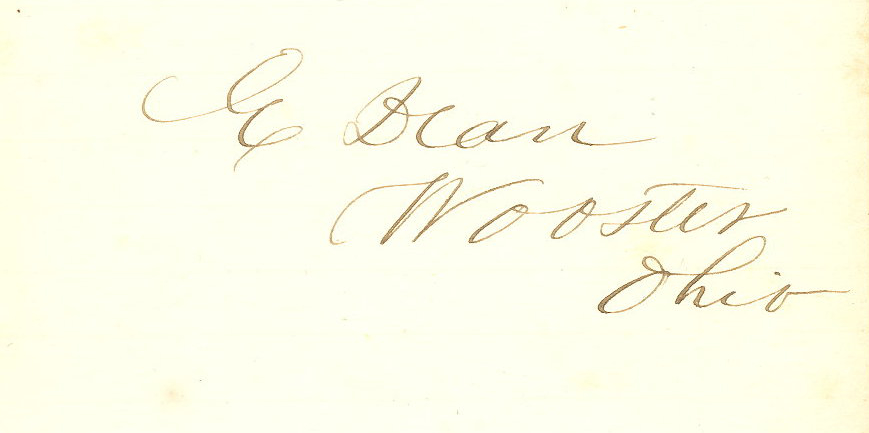 E Dean
Wooster
Ohio